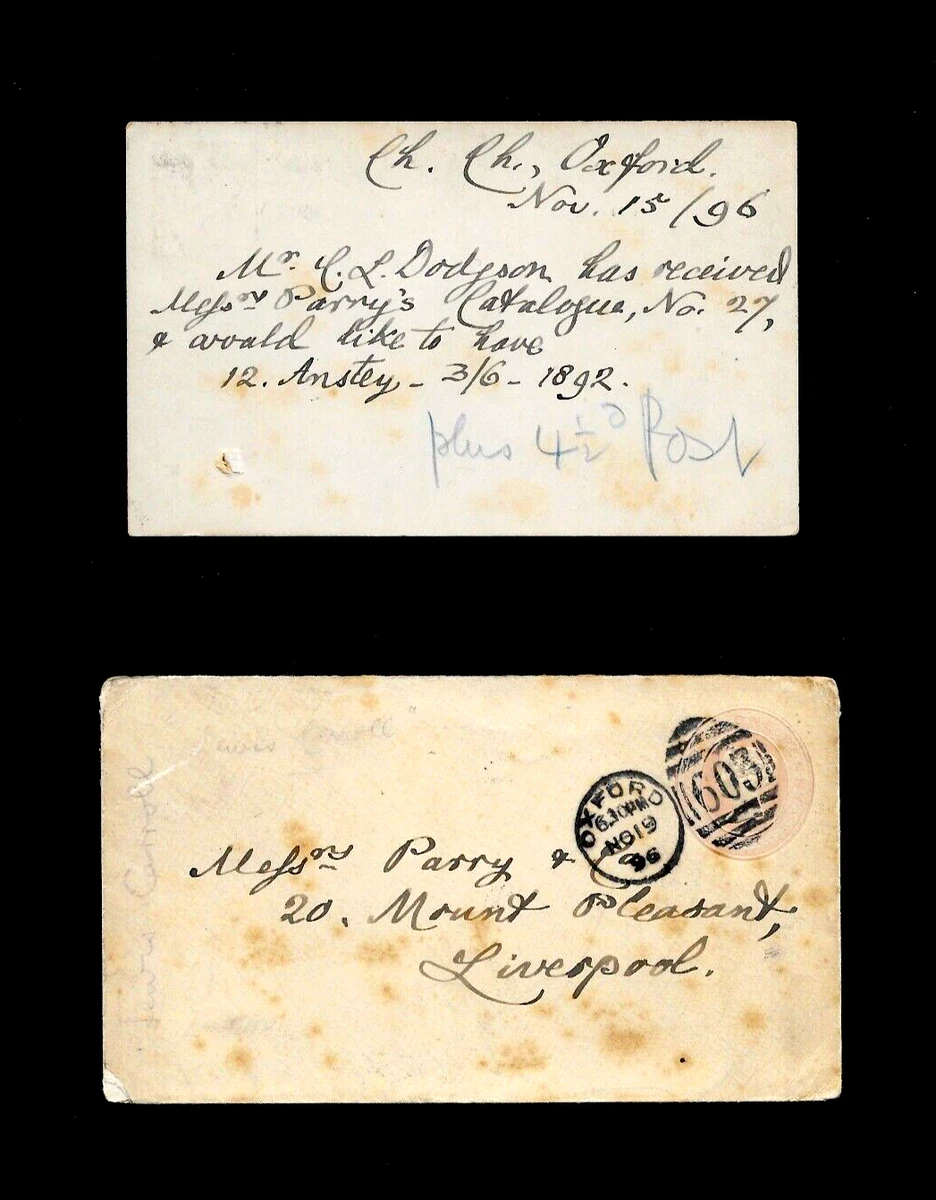 Ch. Ch., Oxford.
Nov. 15/96
Mr. C. L. Dodgson has received
Messrs Parry's Catalogue, No. 27,
& would like to have
12. Anstey – 3/6 – 1892.
plus 4½d Post
"Lewis Carroll"
Lewis Carroll
OXFORD
6.30PM
NO 19
96
603
Messrs Parry & Co
20. Mount Pleasant,
Liverpool.